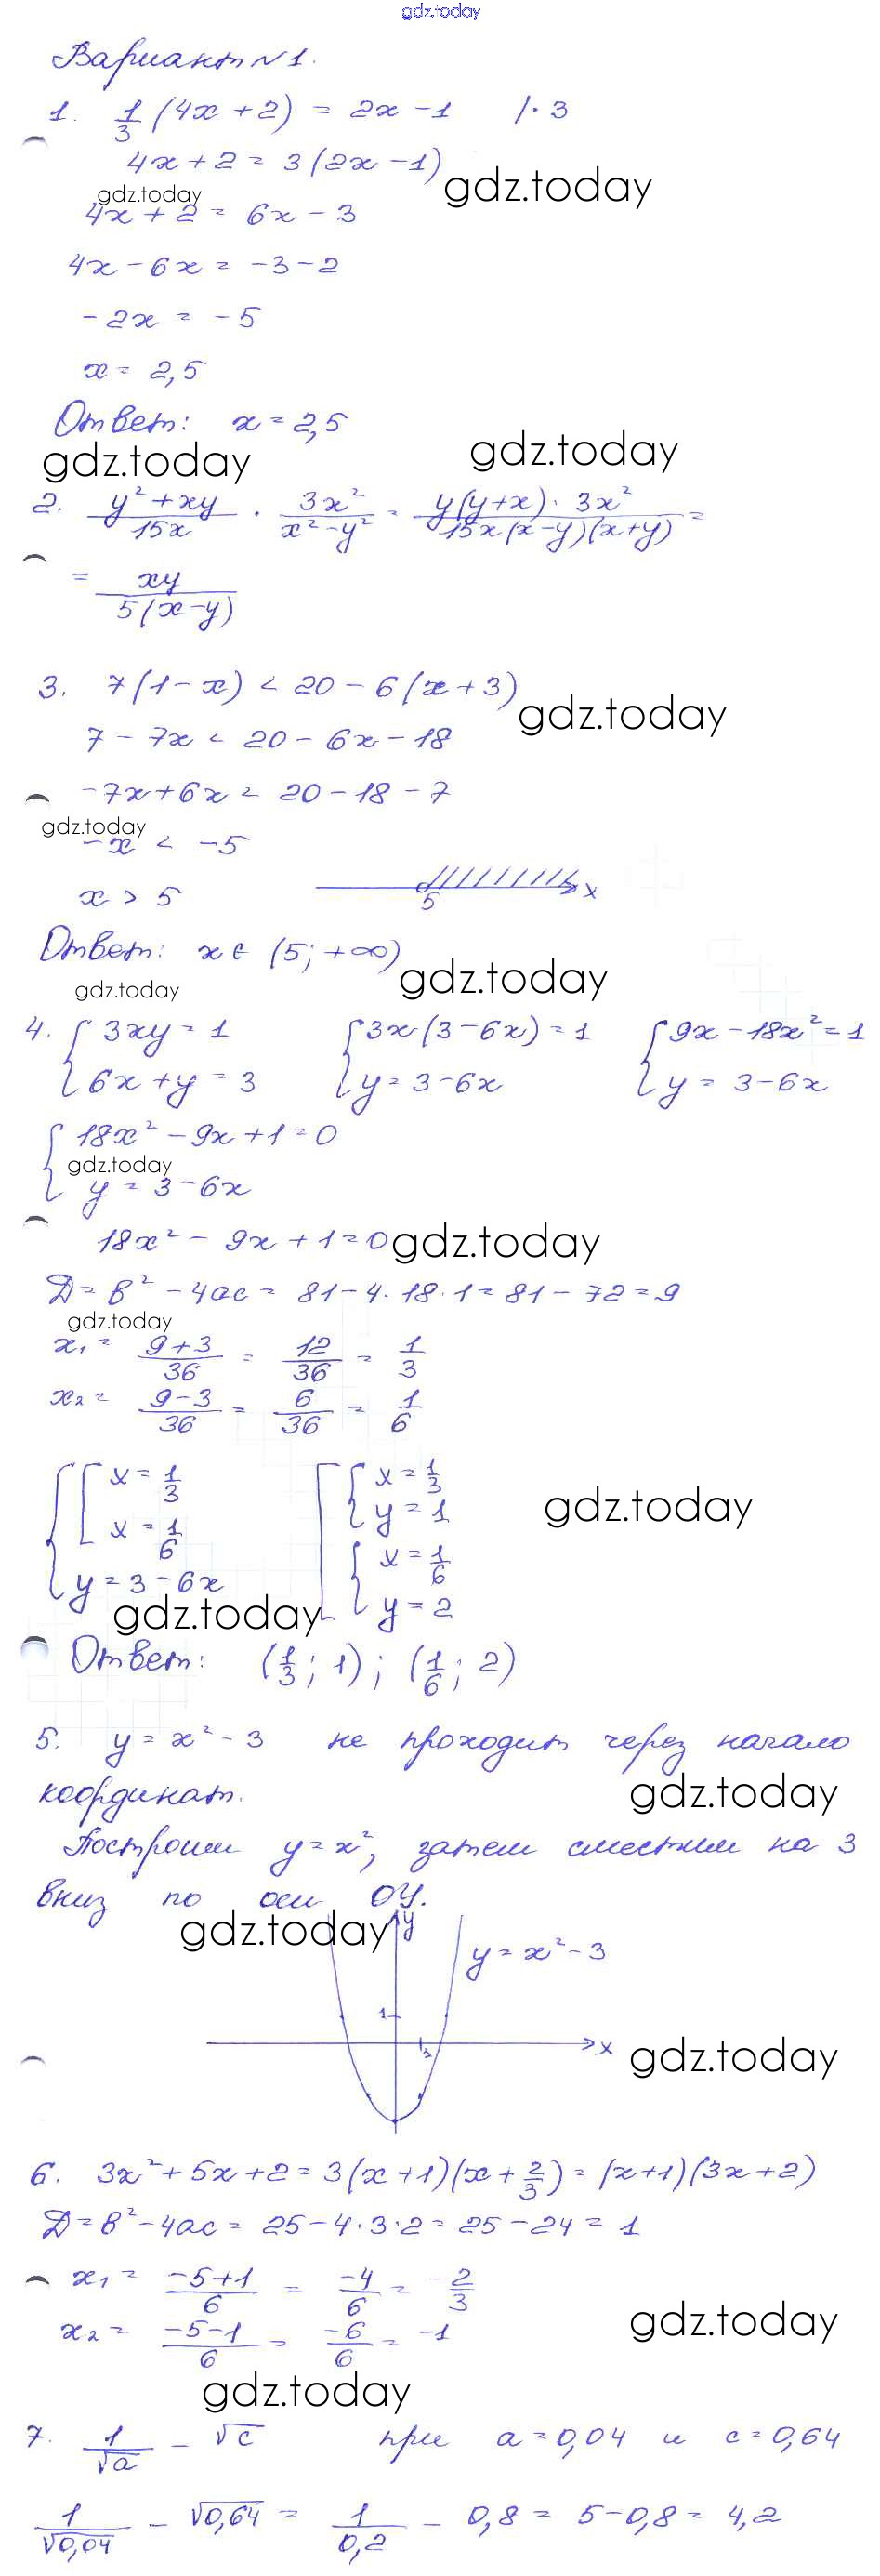 gdz.today
Вариант №1.
1. 1/3 (4x + 2) = 2x - 1 | · 3
4x + 2 = 3(2x - 1)
gdz.today
gdz.today
4x + 2 = 6x - 3
4x - 6x = -3 - 2
-2x = -5
x = 2,5
Ответ: x = 2,5
gdz.today gdz.today
2. (y² + xy)/(15x) · (3x²)/(x² - y²) = (y(y+x) · 3x²)/(15x(x-y)(x+y)) =
= (xy)/(5(x-y))
3. 7(1 - x) < 20 - 6(x + 3)
gdz.today
7 - 7x < 20 - 6x - 18
-7x + 6x < 20 - 18 - 7
gdz.today
-x < -5
x > 5 5 x
Ответ: x ∈ (5; +∞)
gdz.today gdz.today
4. { 3xy = 1 { 3x(3 - 6x) = 1 { 9x - 18x² = 1
{ 6x + y = 3 { y = 3 - 6x { y = 3 - 6x
{ 18x² - 9x + 1 = 0
gdz.today
{ y = 3 - 6x
18x² - 9x + 1 = 0 gdz.today
Д = в² - 4ac = 81 - 4 · 18 · 1 = 81 - 72 = 9
gdz.today
x₁ = (9+3)/36 = 12/36 = 1/3
x₂ = (9-3)/36 = 6/36 = 1/6
{ [ x = 1/3 [ { x = 1/3
[ x = 1/6 { y = 1 gdz.today
{ x = 1/6
y = 3 - 6x { y = 2
gdz.today
Ответ: (1/3; 1); (1/6; 2)
5. y = x² - 3 не проходит через начало
координат.
gdz.today
Построим y = x², затем сместим на 3
вниз по оси OY.
gdz.today y
y = x² - 3
1
x gdz.today
6. 3x² + 5x + 2 = 3(x + 1)(x + 2/3) = (x+1)(3x+2)
Д = в² - 4ac = 25 - 4 · 3 · 2 = 25 - 24 = 1
x₁ = (-5+1)/6 = -4/6 = -2/3
x₂ = (-5-1)/6 = -6/6 = -1
gdz.today
gdz.today
7. 1/√a - √c при a = 0,04 и c = 0,64
1/√0,04 - √0,64 = 1/0,2 - 0,8 = 5 - 0,8 = 4,2